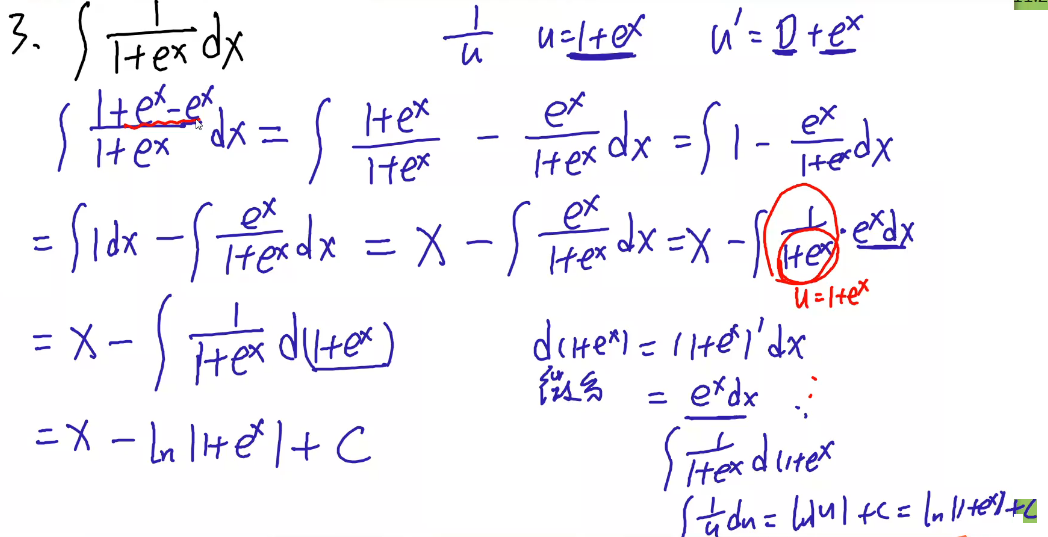 3. ∫ 1/(1+e^x) dx    1/u    u=1+e^x    u' = 0+e^x
∫ (1+e^x-e^x)/(1+e^x) dx = ∫ (1+e^x)/(1+e^x) - e^x/(1+e^x) dx = ∫ 1 - e^x/(1+e^x) dx
= ∫ 1dx - ∫ e^x/(1+e^x) dx = x - ∫ e^x/(1+e^x) dx = x - ∫ 1/(1+e^x) · e^x dx
u=1+e^x
= x - ∫ 1/(1+e^x) d(1+e^x)
d(1+e^x) = (1+e^x)'dx
= e^x dx
= x - ln|1+e^x| + C
∫ 1/(1+e^x) d(1+e^x
∫ 1/u du = ln|u| +C = ln|1+e^x|+C